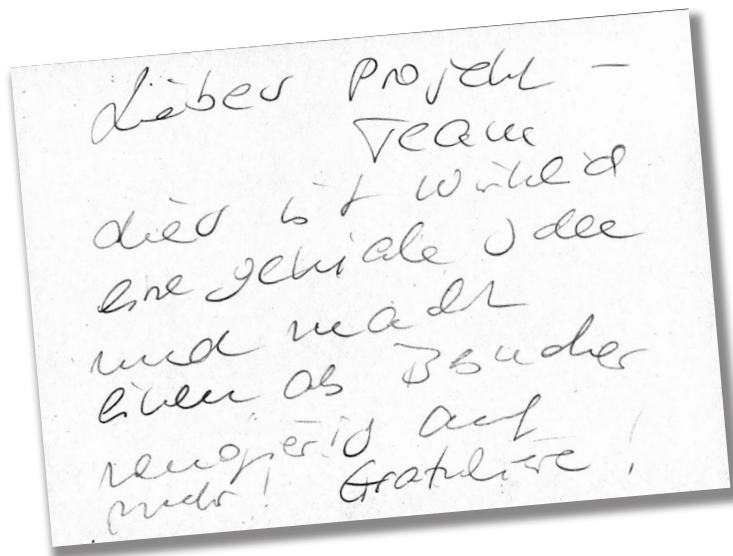 Liebes Projekt -
Team
dies ist wirklich
eine geniale Idee
und macht
einen als Besucher
neugierig auf
mehr! Gratuliere!